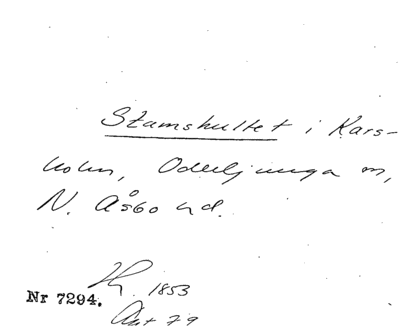 Stamshultet i Kars-
holm, Oderljunga sn,
N. Åsbo hd.
1853
Nr 7294.
Ant 79